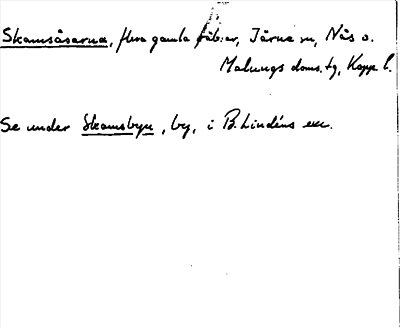 Skamsåsarna, flera gamla fäb:ar, Järna sn, Nås o.
Malungs doms. tg, Kopp. l.
Se under Skamsbyn, by, i B. Lindéns exc.